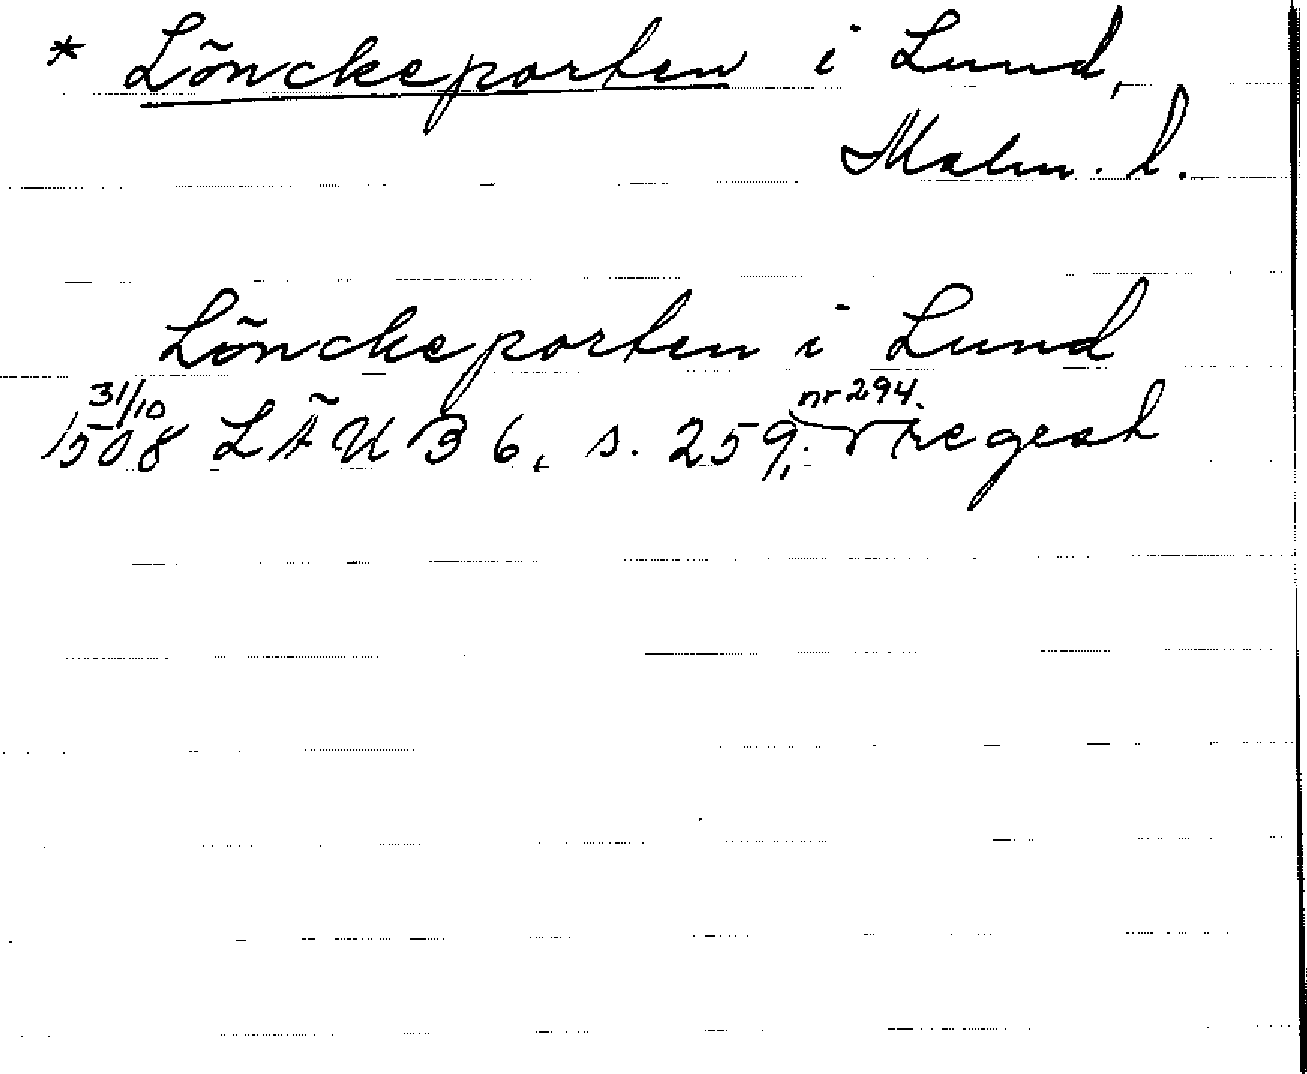 * Lönckeporten i Lund,
Malm. l.
Lönckeporten i Lund
31/10 nr 294.
1508 LÄUB 6, s. 259; regest